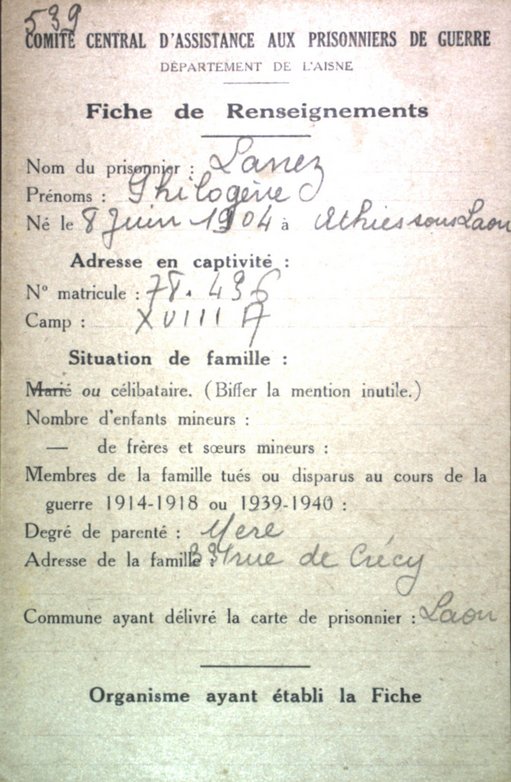 539
COMITÉ CENTRAL D'ASSISTANCE AUX PRISONNIERS DE GUERRE
DÉPARTEMENT DE L'AISNE
Fiche de Renseignements
Nom du prisonnier : Lanez
Prénoms : Philogène
Né le 8 Juin 1904 à Athies sous Laon
Adresse en captivité :
N° matricule : 78.436
Camp : XVIII A
Situation de famille :
Marié ou célibataire. (Biffer la mention inutile.)
Nombre d'enfants mineurs :
— de frères et sœurs mineurs :
Membres de la famille tués ou disparus au cours de la
guerre 1914-1918 ou 1939-1940 :
Degré de parenté : Mere
Adresse de la famille : rue de Crécy
Commune ayant délivré la carte de prisonnier : Laon
Organisme ayant établi la Fiche